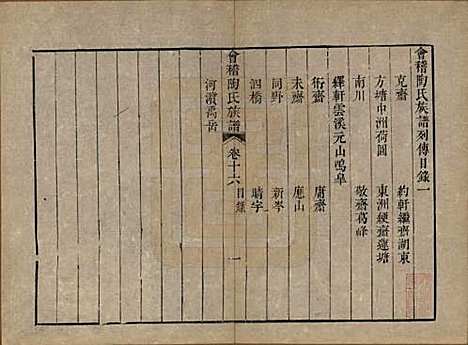 會稽陶氏族譜列傳目錄一
克齋 約軒繼齋湖東
方塘中洲荷園 東洲綆齋蓮塘
南川 敬齋葛峰
繹軒雲溪元山鳴皐
衍齋 庸齋
未齋 應山
同野 新岑
泗橋 晴宇
會稽陶氏族譜 卷十六 目錄 一
河濱禹